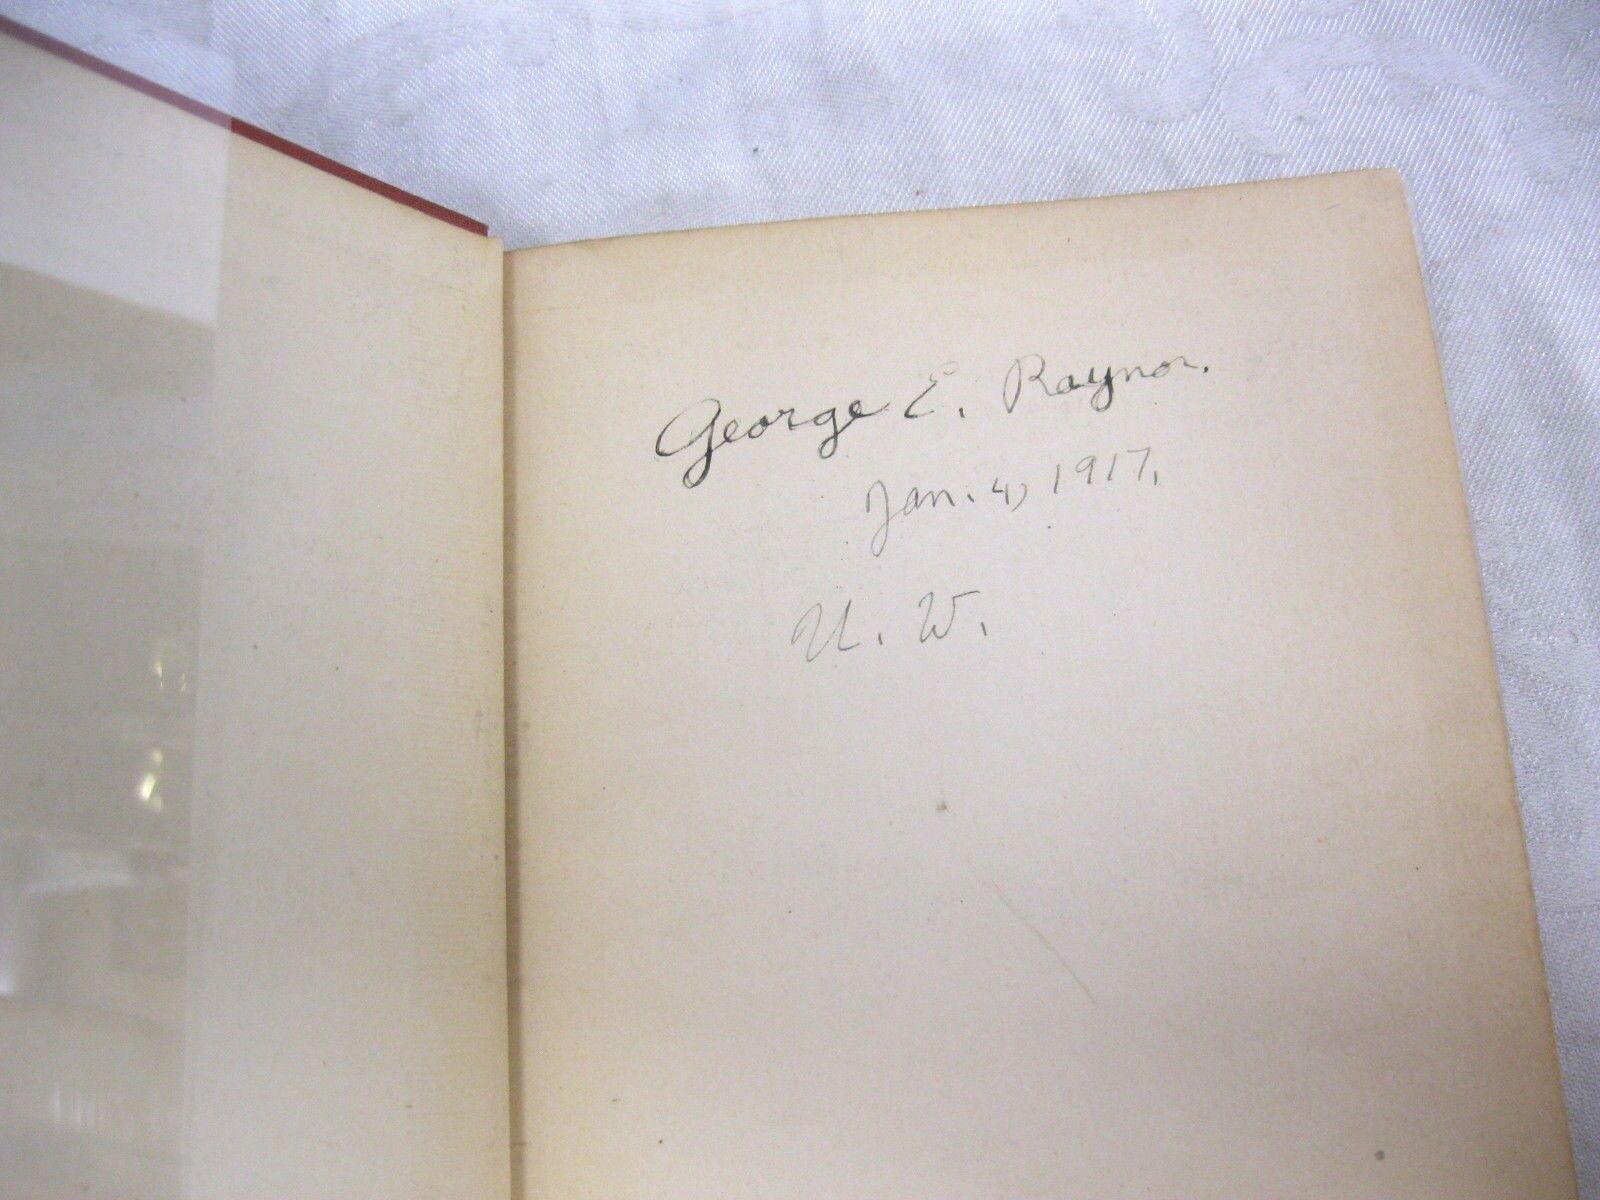 George E. Raynor.
Jan. 4, 1917.
U. W.